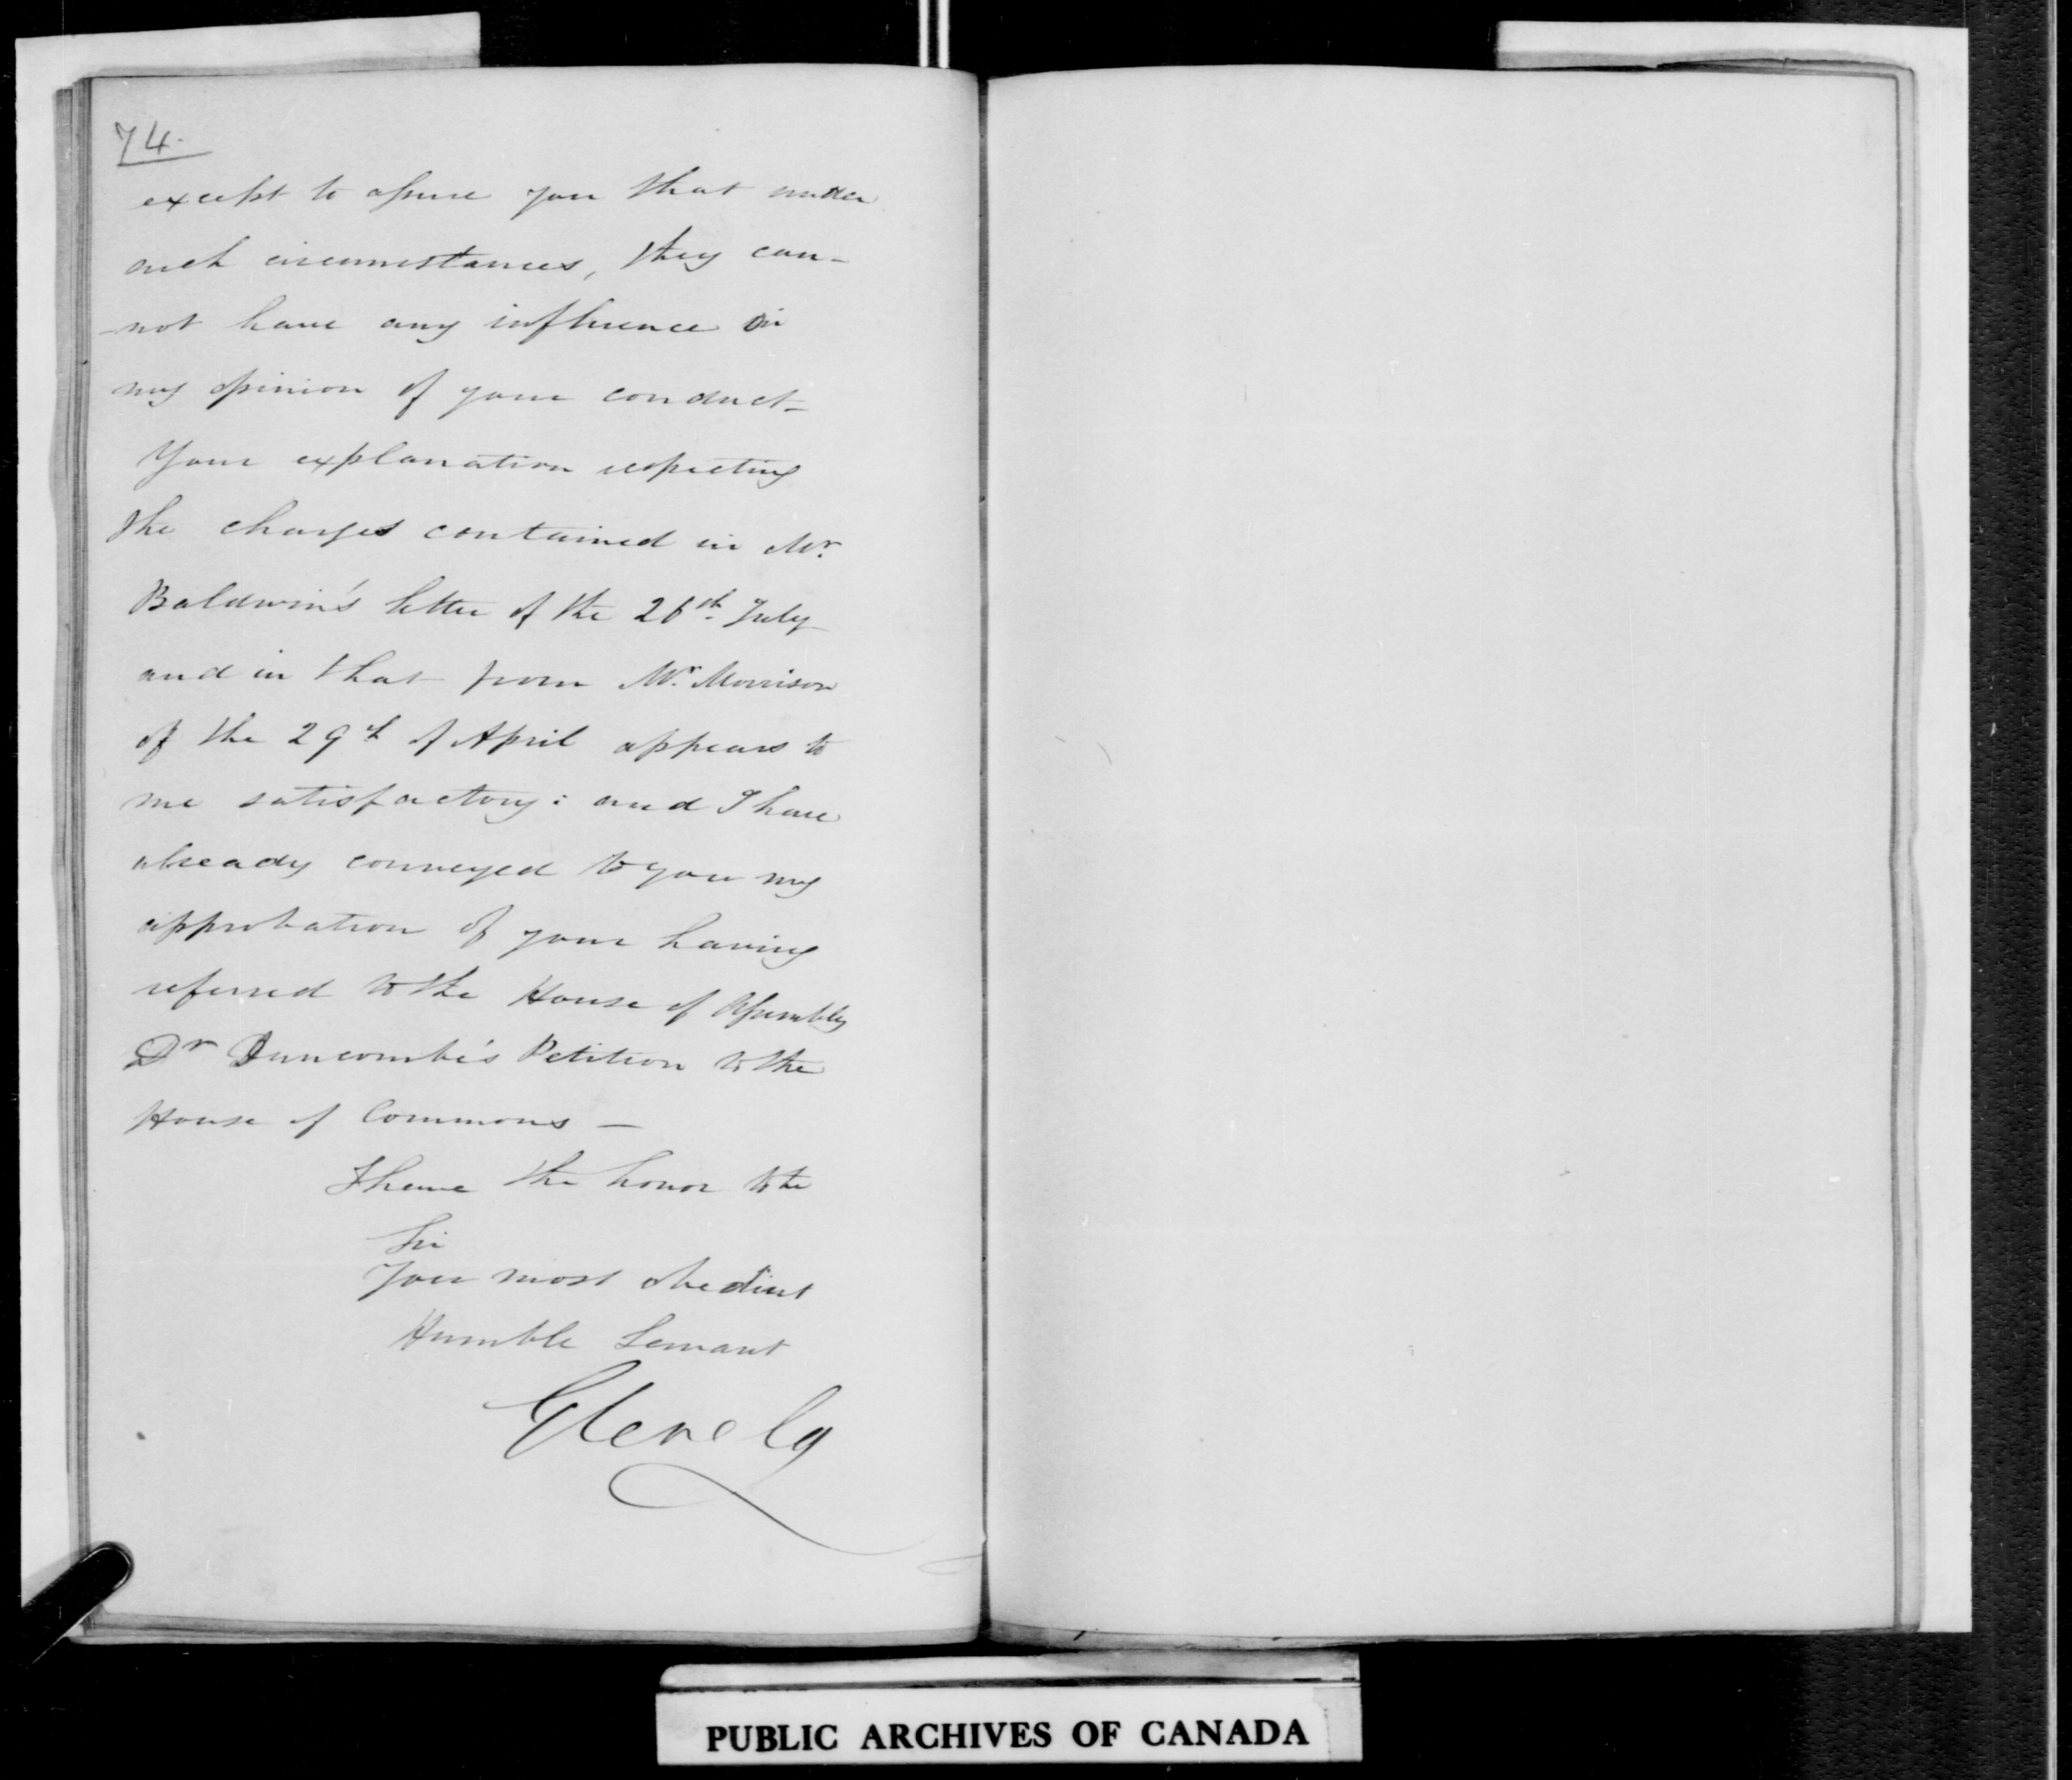 74.
except to assure you that under
such circumstances, they can-
-not have any influence on
my opinion of your conduct_
Your explanation respecting
the charges contained in Mr.
Baldwin's letter of the 26th. July
and in that from Mr. Morrison
of the 29th of April appears to
me satisfactory: and I have
already conveyed to you my
approbation of your having
referred to the House of Assembly
Dr Duncombe's Petition to the
House of Commons —
I have the honor to be
Sir
Your most obedient
Humble Servant
Glenelg
PUBLIC ARCHIVES OF CANADA